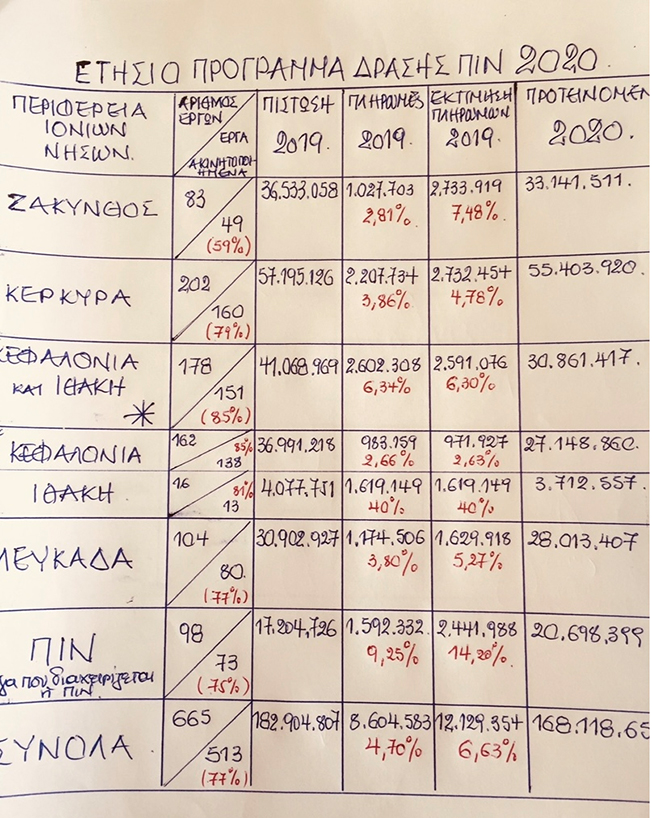 ΕΤΗΣΙΟ ΠΡΟΓΡΑΜΜΑ ΔΡΑΣΗΣ ΠΙΝ 2020.
ΠΕΡΙΦΕΡΕΙΑ ΙΟΝΙΩΝ ΝΗΣΩΝ. ΑΡΙΘΜΟΣ ΕΡΓΩΝ ΕΡΓΑ ΑΚΙΝΗΤΟΠΟΙΗΜΕΝΑ ΠΙΣΤΩΣΗ 2019. ΠΛΗΡΩΜΕΣ 2019. ΕΚΤΙΜΗΣΗ ΠΛΗΡΩΜΩΝ 2019. ΠΡΟΤΕΙΝΟΜΕΝ 2020.
ΖΑΚΥΝΘΟΣ 83 36,533.058 1.027.703 2.733.919 33.141.511.
49 2,81% 7,48%
(59%)
ΚΕΡΚΥΡΑ 202 57.195.126 2.207.734 2.732.454 55.403.920.
160 3,86% 4,78%
(79%)
ΚΕΦΑΛΟΝΙΑ 178 41.068.969 2.602.308 2.591.076 30.861.417.
ΚΑΙ ΙΘΑΚΗ 151 6,34% 6,30%
* (85%)
ΚΕΦΑΛΟΝΙΑ 162 85% 36.991.218 983.159 971.927 27.148.860.
138 2,66% 2,63%
ΙΘΑΚΗ 16 81% 4.077.751 1.619.149 1.619.149 3.712.557.
13 40% 40%
ΛΕΥΚΑΔΑ 104 30.902.927 1.174.506 1.629.918 28.013.407
80. 3,80% 5,27%
(77%)
ΠΙΝ 98 17.204.726 1.592.332. 2.441.988 20.698.399
γα που διαχειρίζεται 73 9,25% 14,20%
η ΠΙΝ (75%)
ΣΥΝΟΛΑ 665 182.904.807 8.604.583 12.129.354 168.118.65
513 4,70% 6,63%
(77%)